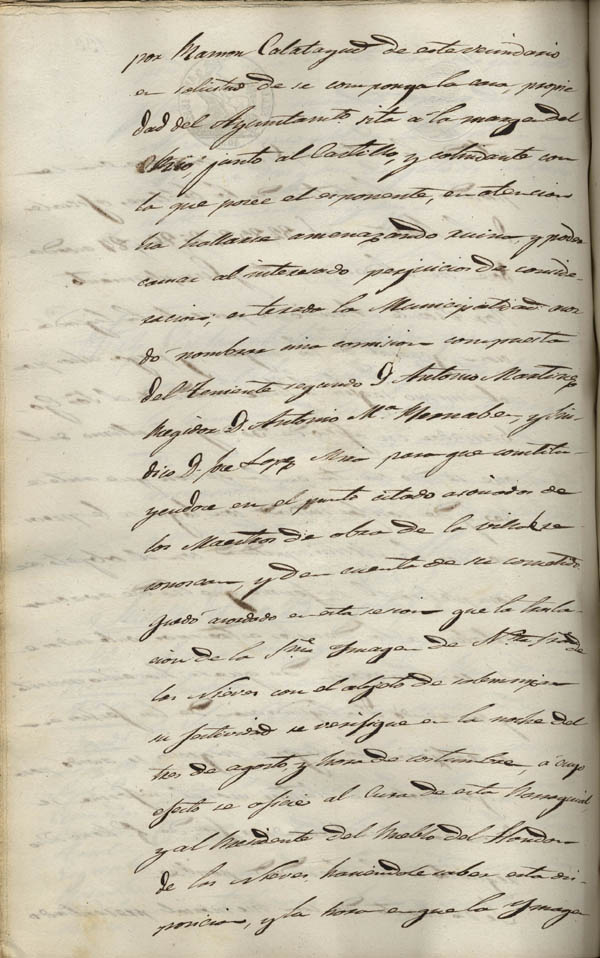 por Ramon Calatayud de este vecindario
en solicitud de se componga la casa, propie
dad del Ayuntamto. sita a la margen del
Rio, junto al Castillo, y colindante con
la que posee el exponente, en atencion
ha hallarse amenazando ruina, y poder
causar al interesado perjuicios de conside-
racion; enterada la Municipalidad acor
dó nombrar una comision compuesta
del Teniente segundo D. Antonio Martinez
Regidor D. Antonio Ma. y Sin-
dico D. Jose Lopez para que constitu-
yendose en el punto citado asociados de
los Maestros de obra de la villa se
conoscan, y den cuenta de su cometido.
Quedó acordado en esta sesion que la trasla-
cion de la Sma. Ymagen de Ntra. Sra. de
las Nieves con el objeto de solemnizar
su festividad se verifique en la noche del
tres de agosto y hora de costumbre, á cuyo
efecto se oficie al Cura de esta Parroquial,
y al Presidente del Pueblo del Hondon
de las Nieves, haciendole saber esta dis-
posicion, y la hora en que la Ymagen